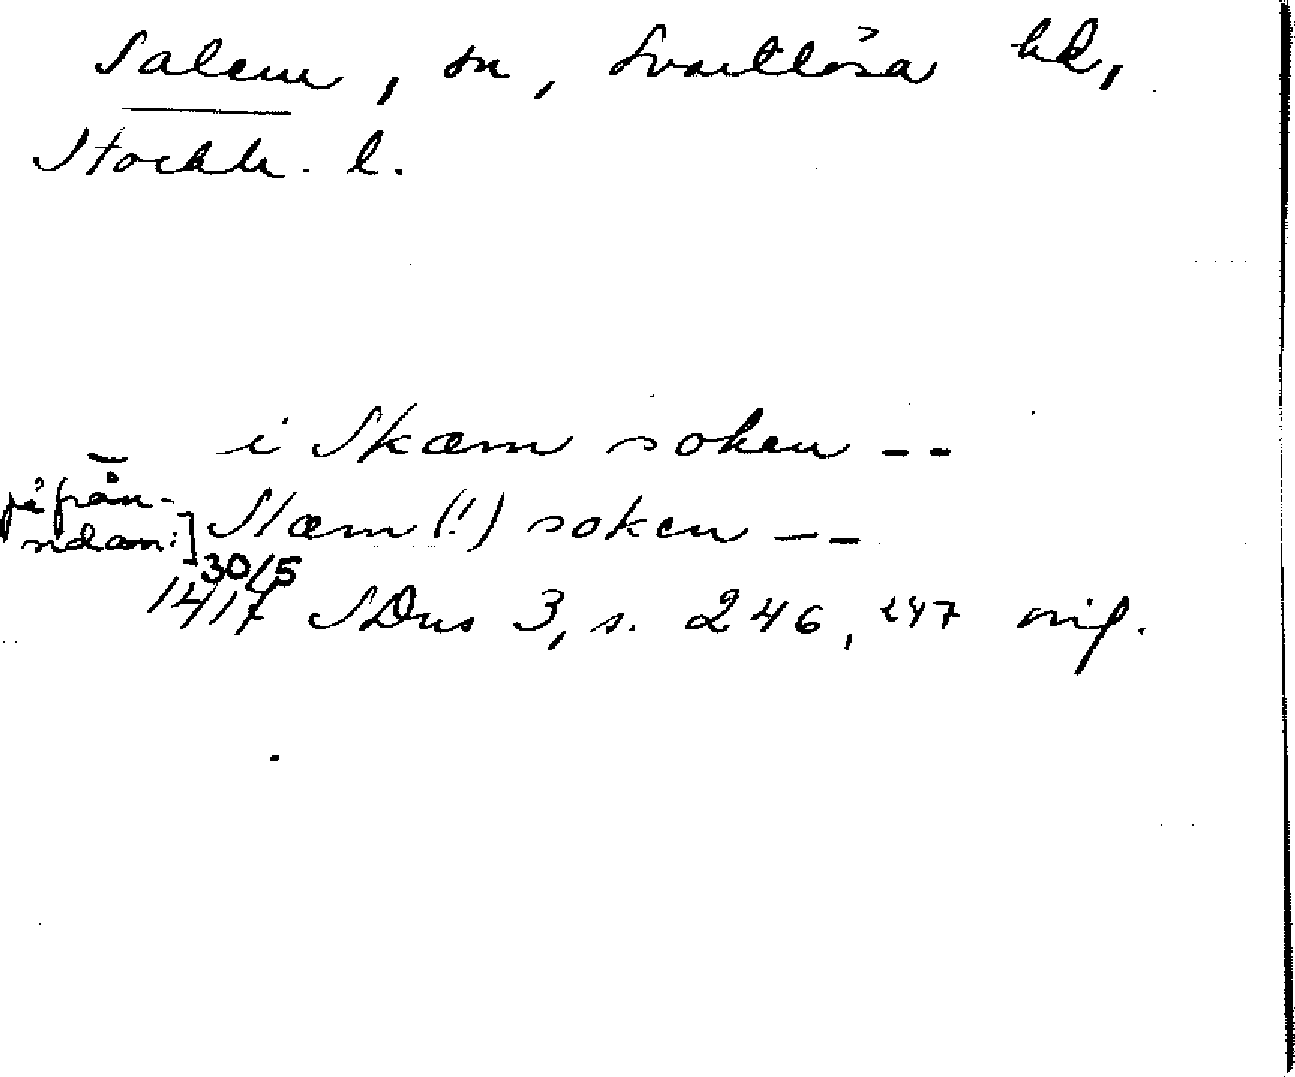 Salem, sn, Svartlösa hd,
Stockh. l.
i Skæm soken --
på från-
sidan:] Slæm (!) soken --
1417 30/5 SDns 3, s. 246, 247 orig.